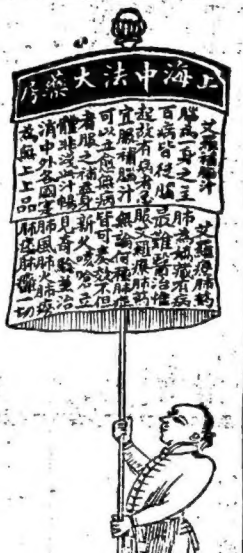 上海中法大藥房
艾羅補腦汁
腦為一身之主
百病皆從腦
起故有病者急
宜服補腦汁
可以立愈無病
者服之補益身
體非淺此汁暢
消中外各國實
為無上上品
艾羅療肺藥
肺為嬌臟有病
最難醫治惟
服艾羅療肺藥
無論何種肺症
皆可奏效不但
新久咳嗆立
見奇效並治
肺風肺火肺痿
一切